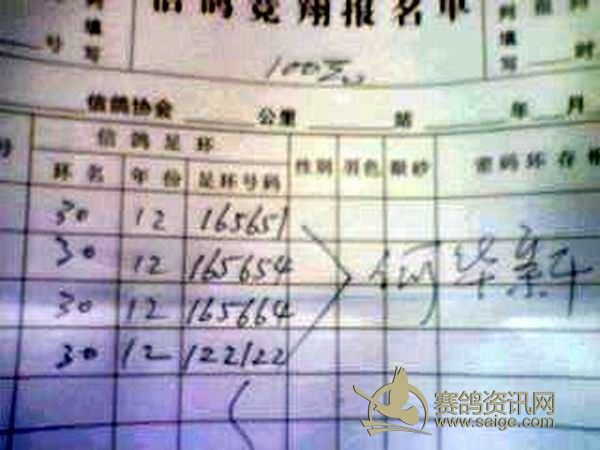 信鸽竞翔报名单
号 填写 时
100元
信鸽协会 公里 站 年 月
号 信鸽足环 性别 羽色 眼砂 密码环存根
环名 年份 足环号码
30 12 165651
30 12 165654
30 12 165664
30 12 122122
何
赛鸽资讯网
www.saige.com